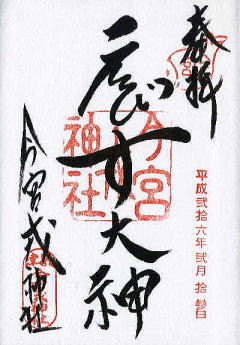 奉拝
びす大神
今宮
戎
神社
平成弐拾六年弐月拾參日
今宮戎神社